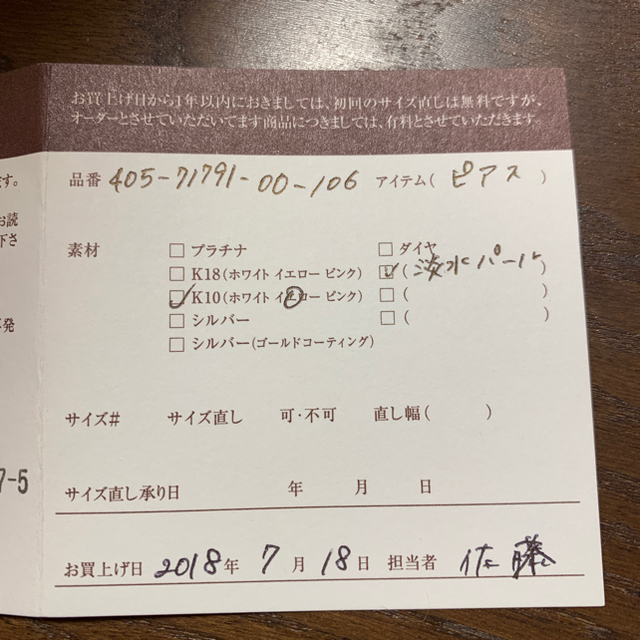 お買上げ日から1年以内におきましては、初回のサイズ直しは無料ですが、
オーダーとさせていただいてます商品につきましては、有料とさせていただきます。
品番 405-71791-00-106 アイテム( ピアス )
素材 □ プラチナ □ ダイヤ
□ K18(ホワイト イエロー ピンク) ☑ ( 淡水パール )
☑ K10(ホワイト イエロー ピンク) □ ( )
□ シルバー □ ( )
□ シルバー(ゴールドコーティング)
サイズ# サイズ直し 可・不可 直し幅( )
サイズ直し承り日 年 月 日
お買上げ日 2018年 7月 18日 担当者 佐藤
す。
お読
下さ
発
7-5